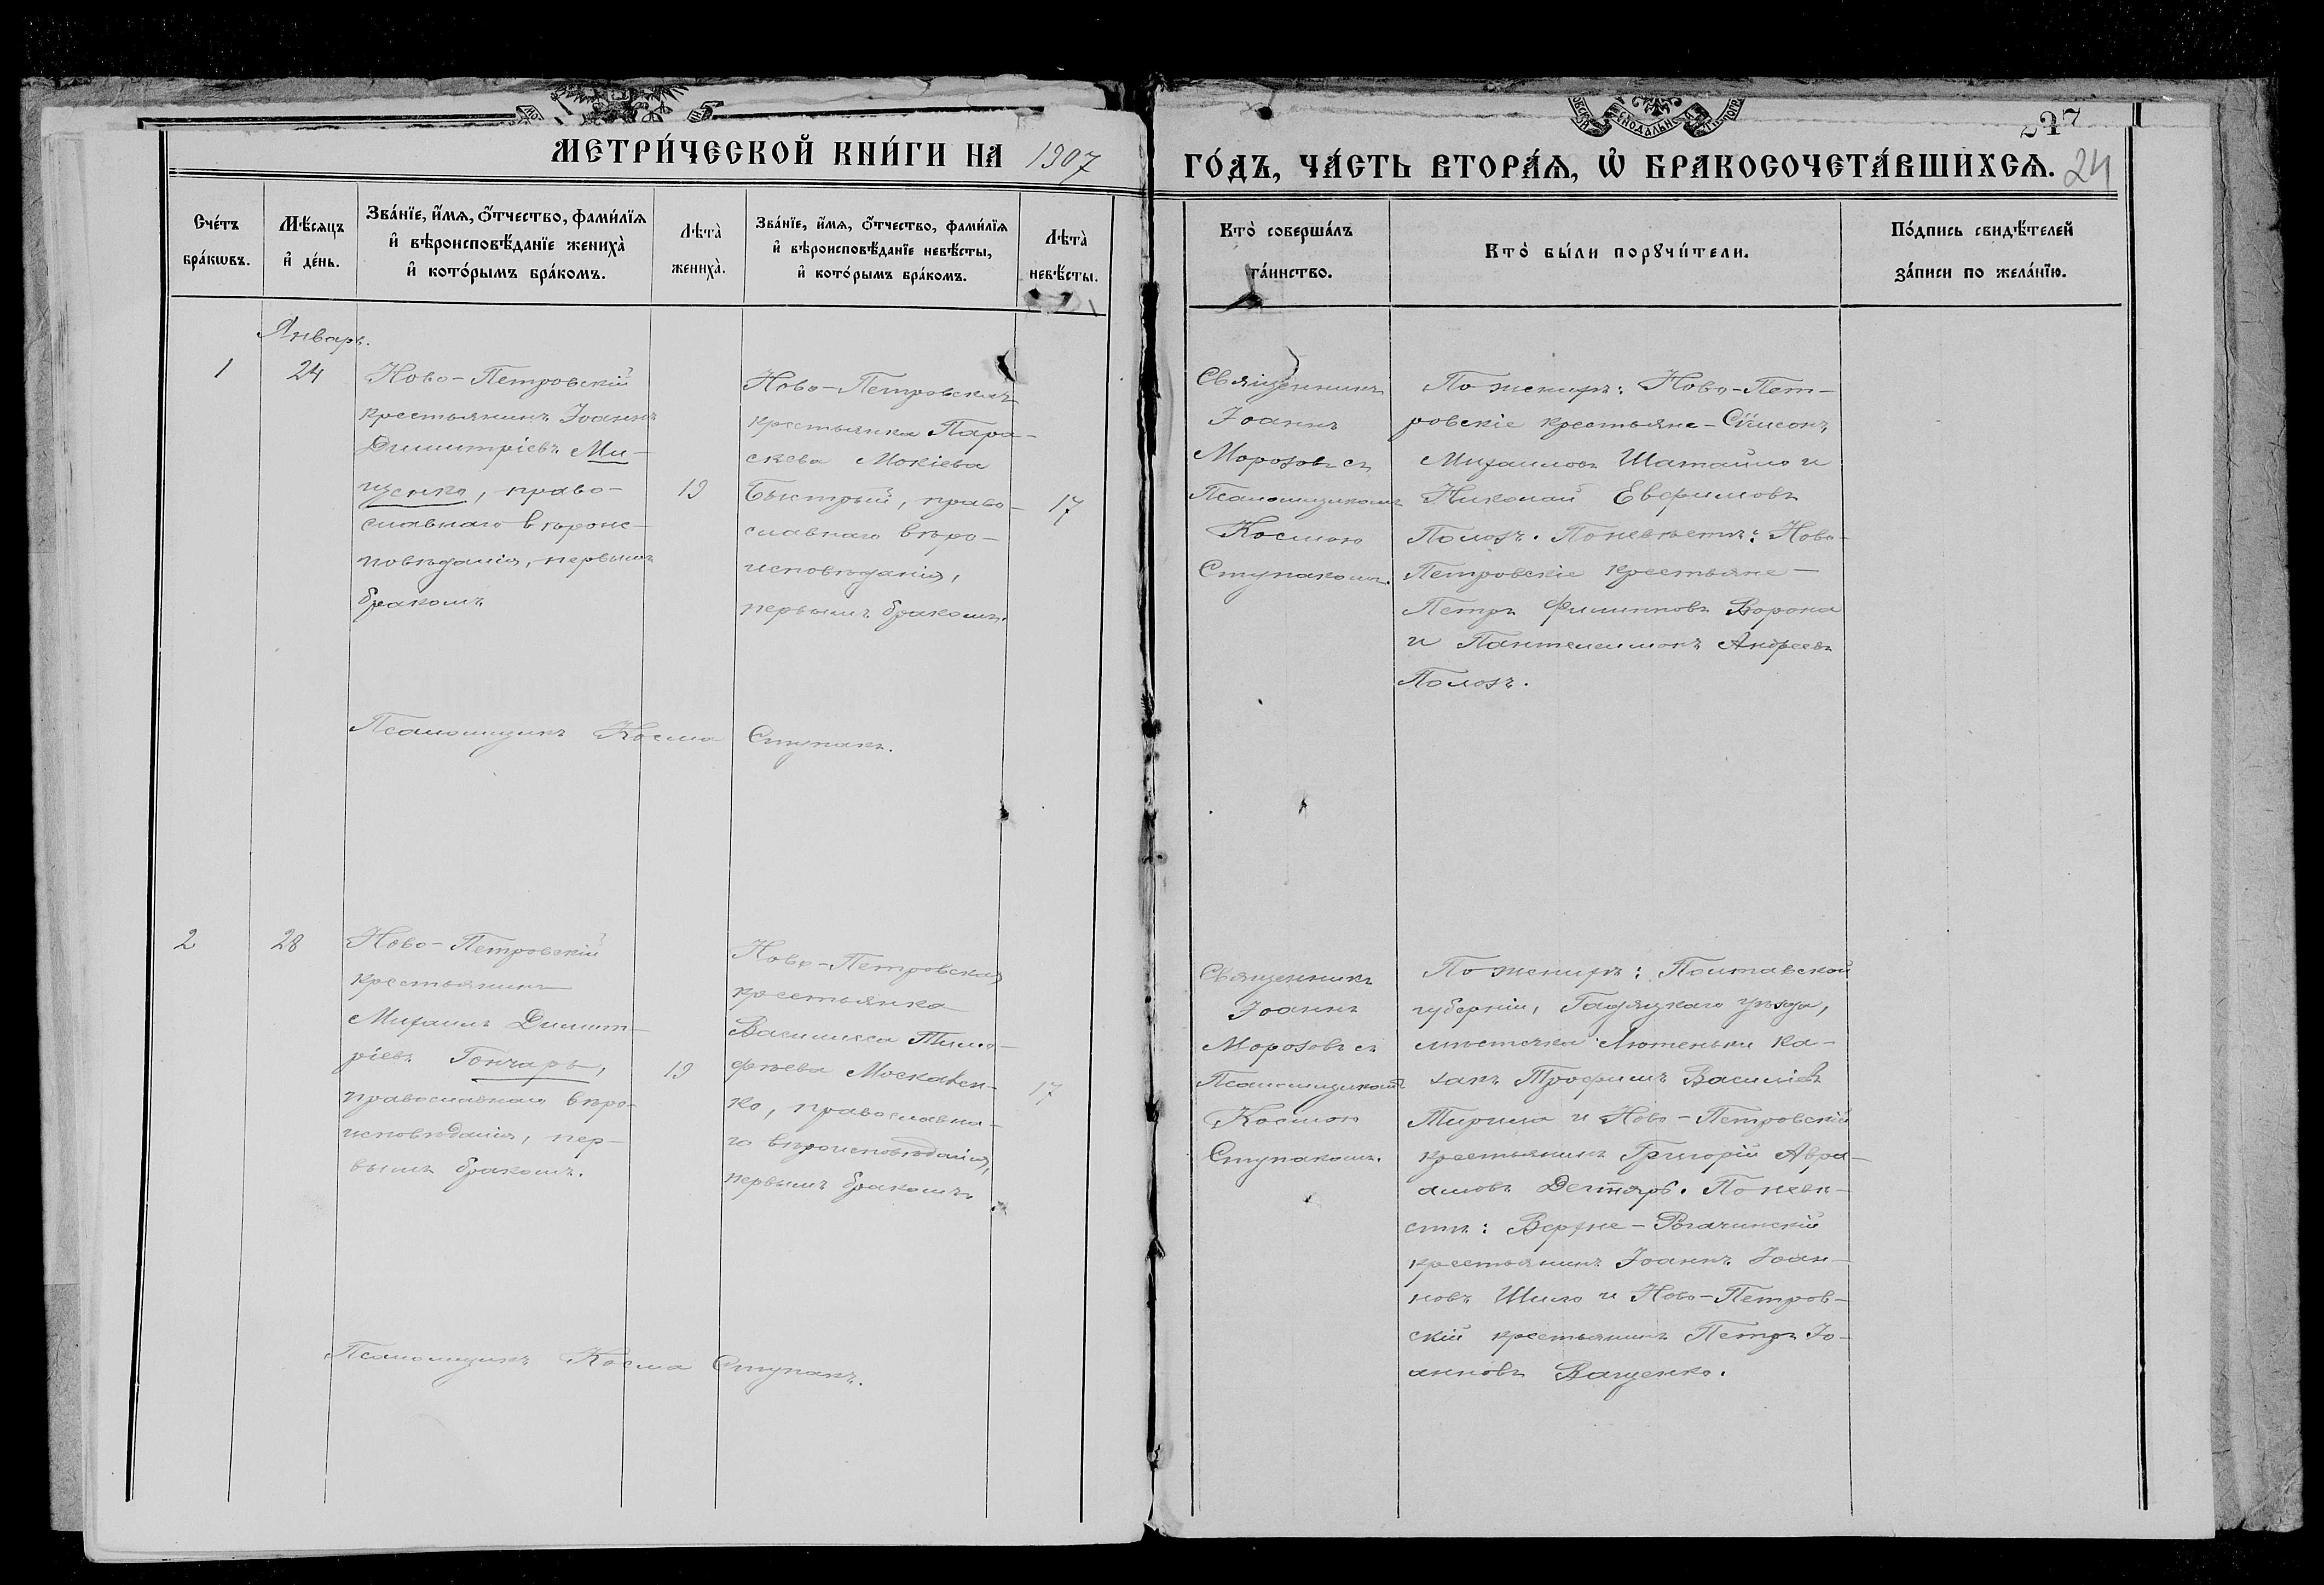 МЕТРИ́ЧЕСКОЙ КНИ́ГИ НА 1907
ГО́ДЪ, ЧА́СТЬ ВТОРА́Ѧ, Ѡ҆ БРАКОСОЧЕТА́ВШИХСѦ.
24
Сче́тъ
бра́кѡвъ.
Мѣ́сяцъ
и҆ де́нь.
Зва́нїе, и҆́мѧ, ѻ҆́тчество, фами́лїѧ
и҆ вѣроисповѣ́данїе жениха̀
и҆ кото́рымъ бра́комъ.
Лѣта̀
жениха̀.
Зва́нїе, и҆́мѧ, ѻ҆́тчество, фами́лїѧ
и҆ вѣроисповѣ́данїе невѣ́сты,
и҆ кото́рымъ бра́комъ.
Лѣта̀
невѣ́сты.
Кто̀ соверша́лъ
та́инство.
Кто̀ бы́ли порꙋчи́тели.
По́дпись свидѣ́телей
за́писи по жела́нїю.
Январь.
1
24
Ново-Петровскій
крестьянинъ Іоаннъ
Димитріевъ Ми-
щенко, право-
славнаго вѣроис-
повѣданія, первымъ
бракомъ
19
Ново-Петровская
крестьянка Пара-
скева Мокіева
Быстрый, право-
славнаго вѣро-
исповѣданія,
первымъ бракомъ.
17
Священникъ
Іоаннъ
Морозовъ съ
Псаломщикомъ
Космою
Ступакомъ.
По женихѣ: Ново-Пет-
ровскіе крестьяне - Сѵмеонъ
Михаиловъ Шатайло и
Николай Евфимовъ
Полозъ. По невѣстѣ: Ново-
Петровскіе крестьяне -
Петръ Филипповъ Ворона
и Пантелеимонъ Андреевъ
Полозъ.
Псаломщикъ Косма Ступакъ.
2
28
Ново-Петровскій
крестьянинъ
Михаилъ Димит-
ріевъ Гончаръ,
православнаго вѣро-
исповѣданія, пер-
вымъ бракомъ.
19
Ново-Петровская
крестьянка
Василисса Тимо-
фѣева Москален-
ко, православна-
го вѣроисповѣданія,
первымъ бракомъ.
17
Священникъ
Іоаннъ
Морозовъ съ
Псаломщикомъ
Космою
Ступакомъ.
По женихѣ: Полтавской
губерніи, Гадяцкаго уѣзда,
мѣстечка Лютеньки ка-
закъ Трофимъ Василіевъ
и Ново-Петровскій
крестьянинъ Григорій Авра-
амовъ Дегтярь. По невѣ-
стѣ: Верхне-Рогачинскій
крестьянинъ Іоаннъ Іоан-
новъ Шило и Ново-Петров-
скій крестьянинъ Петръ Іо-
анновъ Ващенко.
Псаломщикъ Косма Ступакъ.